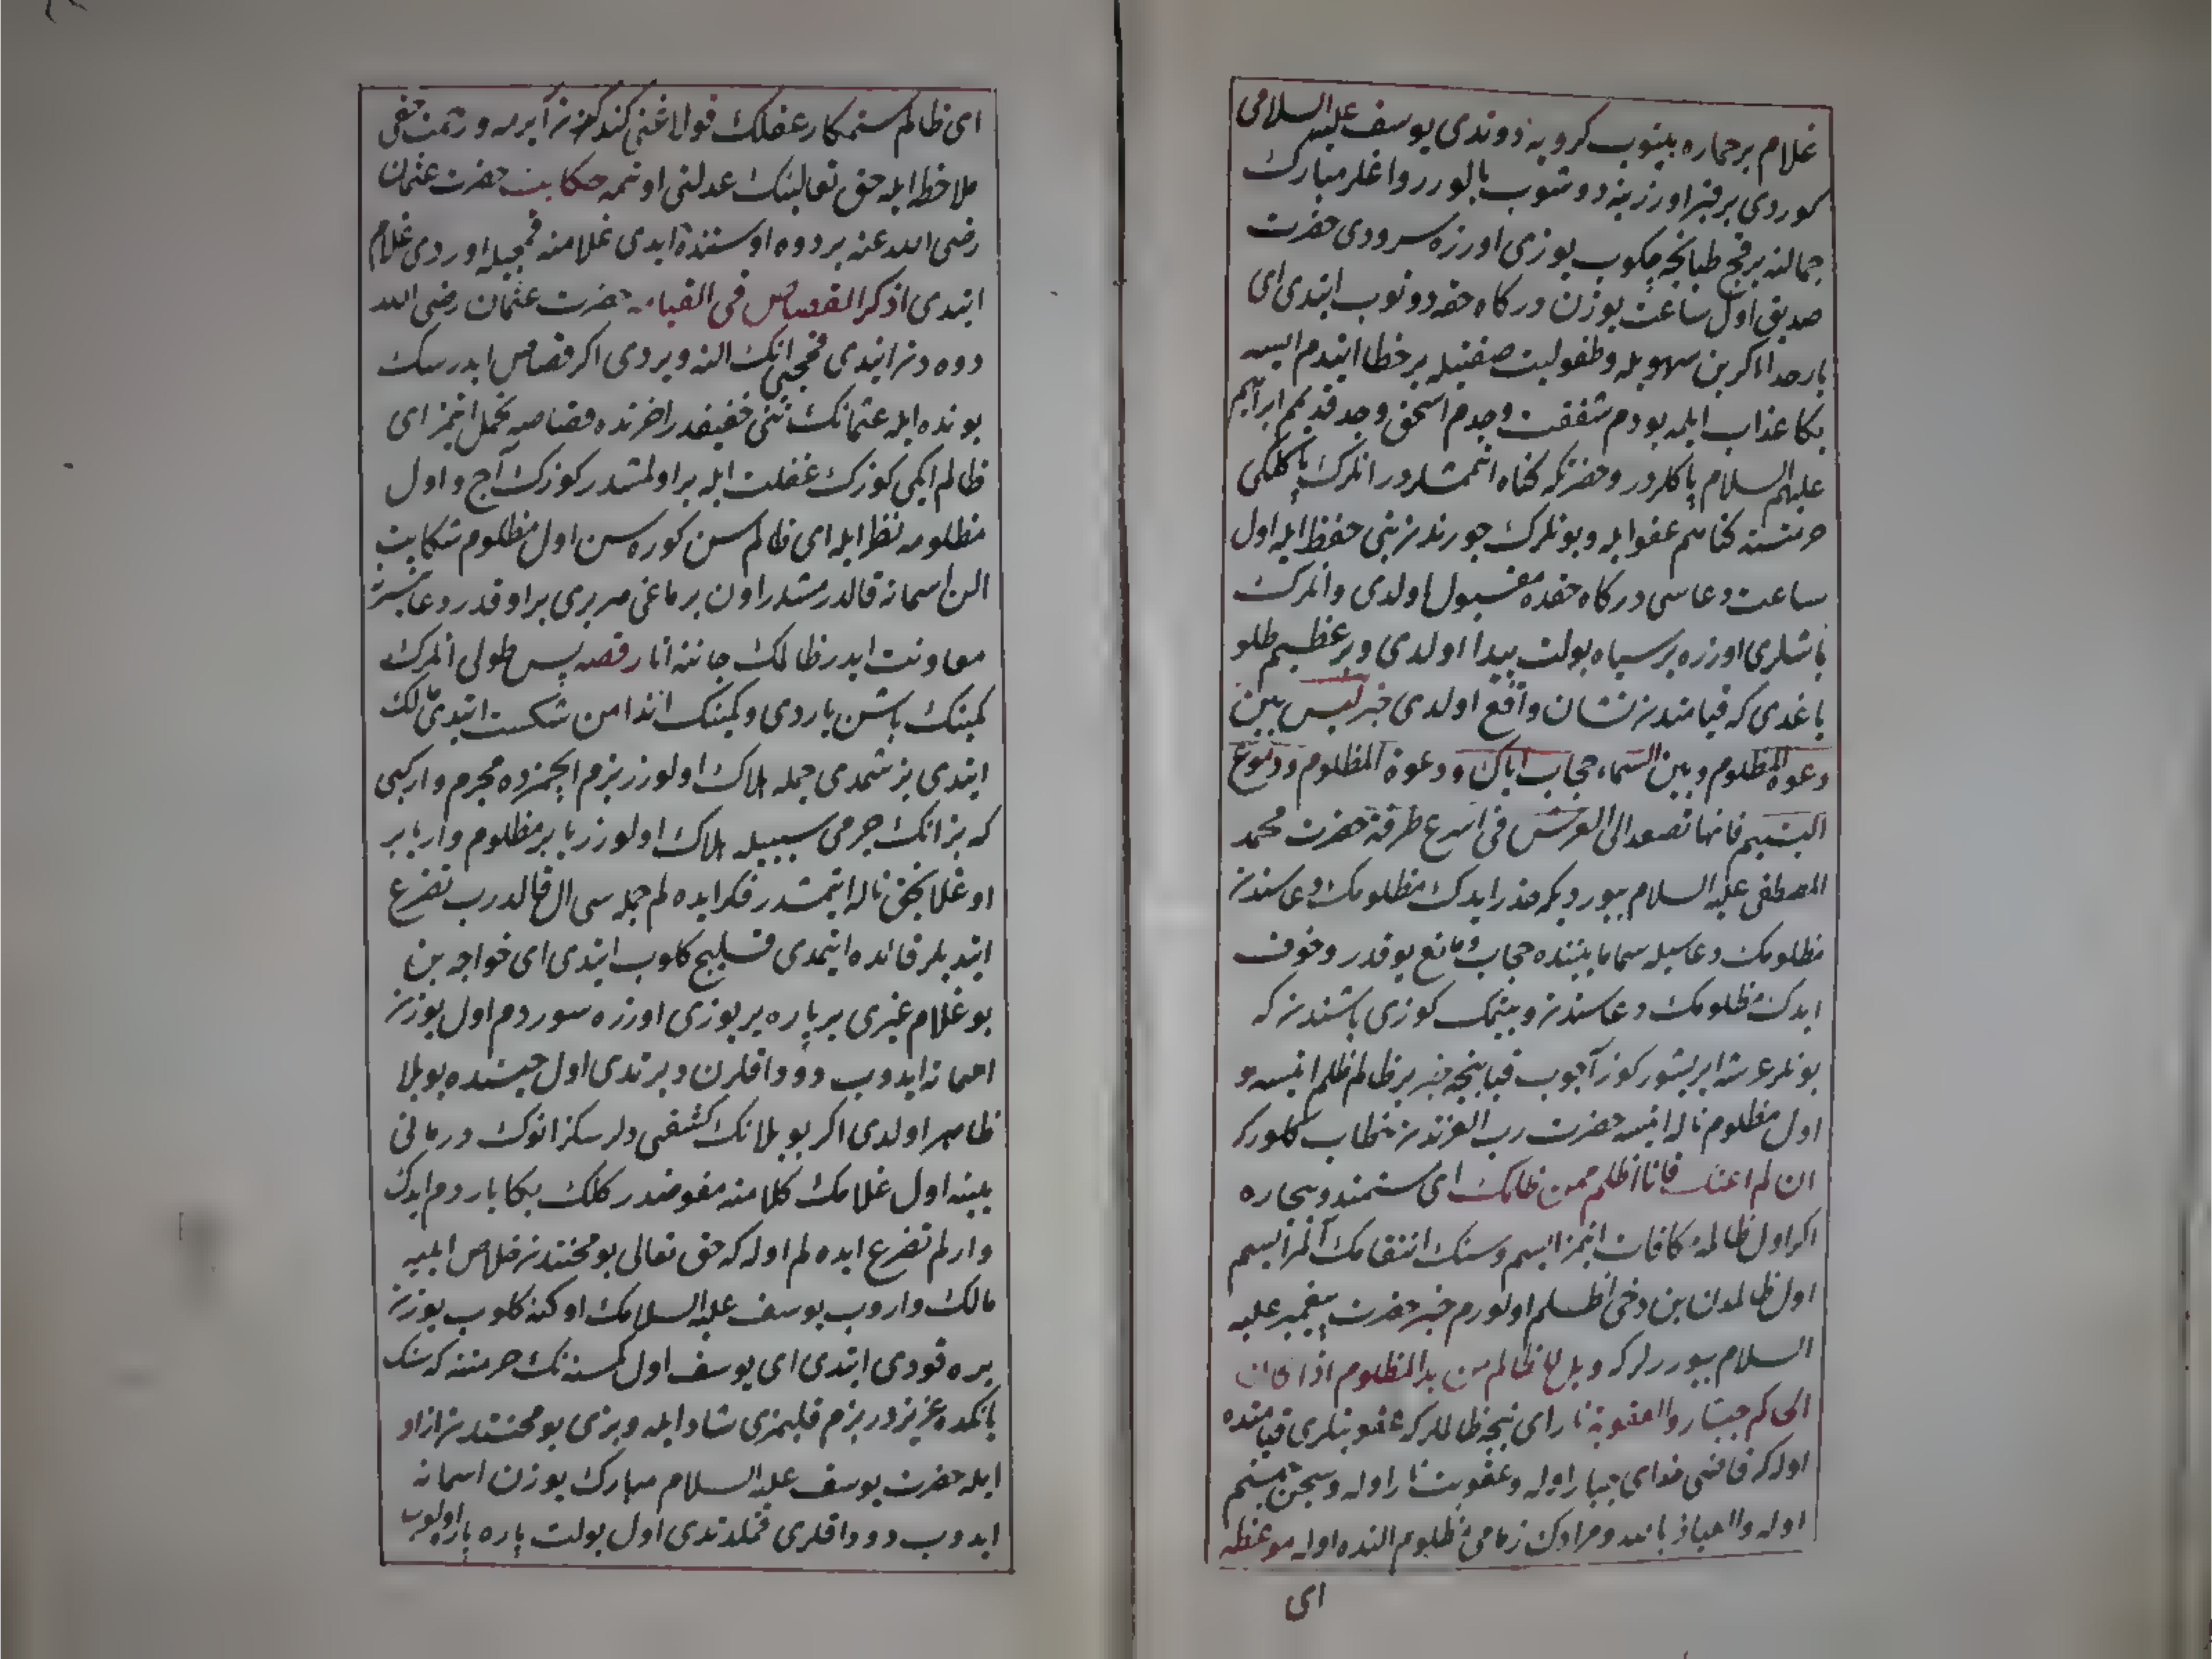 غلام بر حماره بینوب کرویه دوندی یوسف علیه السلامی
کوردی بر قبر اوزرینه دوشوب یالورر و اغلر مبارک
جمالنه بر قچ طبانچه چکوب یوزی اوزره سرودی حضرت
صدیق اول ساعت یوزن درکاه حقه دونوب ایتدی ای
بار خدا اکر بن سهویله و طفولیت صفتیله بر خطا ایتدم ایسه
بکا عذاب ایلمه بو دم شفقت وجدم اسحق وجد قدیمم ابراهیم
علیهم السلام پاکلردر و حضرتکه کناه اتممشلردر انلرک پاکلکی
حرمتنه کناهم عفو ایله و بونلرک جورندن بنی حفظ ایله اول
ساعت دعاسی درکاه حقده مقبول اولدی و انلرک
باشلری اوزره بر سیاه بولت پیدا اولدی و بر عظیم طلو
یاغدی که قیامتدن نشان واقع اولدی خبر لیس بین
دعوة المظلوم و بین السماء حجاب ایاک و دعوة المظلوم و دموع
الیتیم فانها تصعد الی العرش فی اسرع طرفة حضرت محمد
المصطفی علیه السلام بیوردیکه حذر ایدک مظلومک دعاسندن
مظلومک دعاسیله سما مابیننده حجاب و مانع یوقدر و خوف
ایدک مظلومک دعاسندن و یتیمک کوزی یاشندن که
بونلر عرشه ایریشور کوز آچوب قپاینجه خبر بر ظالم ظلم ایتسه و
اول مظلوم ناله ایتسه حضرت رب العزتدن خطاب کلور که
ان لم اعنک فانا اظلم ممن ظلمک ای ستمند و بیچاره
اکر اول ظالمه مکافات ایتمز ایسم و سنک انتقامک آلمز ایسم
اول ظالمدن بن دخی اظلم اولورم خبر حضرت پیغمبر علیه
السلام بیوررلر که ویل للظالم من ید المظلوم اذا کان
الحاکم جبار والعقوبة نار ای نیجه ظالملر که عقوبتلری قیامتده
اوله که قاضی خدای جبار اوله و عقوبت نار اوله و سجن جهنم
اوله والعیاذ بالله و مرادک زمامی مظلوم النده اوله موعظه
ای
ای ظالم ستمکار غفلتک قولاغنی کندکدن آیرمه و رحمت حقی
ملاحظه ایله حق تعالینک عدلنی اونتمه حکایت حضرت عثمان
رضی الله عنه بر دوه اوستنده ایدی غلامنه قمچیله اوردی غلام
ایتدی اذکر القصاص فی القیامه حضرت عثمان رضی الله
دوه دن ایندی قمچی انک النه ویردی اکر قصاص ایدرسک
بونده ایله عثمانک تنی خفیفدر اخرتده قصاصه تحمل ایتمز ای
ظالم ایکی کوزک غفلت ایله بر اولمشدر کوزک آچ و اول
مظلومه نظر ایله ای ظالم سن کوره سن اول مظلوم شکایت
الن اسمانه قالدرمشدر اون برماغی هر بری براوقدر دعا
معاونت ایدر ظالمک جاننه اتار قصه پس طولی انلرک
کیمنک باشن یاردی و کیمنک اندامن شکست ایتدی مالک
ایتدی بز شمدی جمله هلاک اولورز بزم ایچمزده مجرم وار کبی
که بز انک جرمی سببیله هلاک اولورز یا بر مظلوم وار یا بر
اوغلانجق ناله ایتمشدر فکر ایده لم جمله سی ال قالدرب تضرع
ایتدیلر فائده ایتمدی قلیج کلوب ایتدی ای خواجه بن
بو غلام عبری بر پاره یر یوزی اوزره سوردم اول یوزن
اسمانه ایدوب دوداقلرن دپرتدی اول حینده بو بلا
ظاهر اولدی اکر بو بلانک کشفی دلرسکز انوک درمانی
ینه اول غلامک کلامنه مفوضدر کلک بکا یاردم ایدک
وارلم تضرع ایده لم اوله که حق تعالی بو محنتدن خلاص ایلیه
مالک واروب یوسف علیه السلامک اوکنه کلوب یوزن
یره قودی ایتدی ای یوسف اول کمسنه نک حرمتنه که سنک
یانکده عزیزدر بزم قلبمزی شاد ایله و بزی بو محنتدن ازاد
ایله حضرت یوسف علیه السلام مبارک یوزن اسمانه
ایدوب دوداقلری قملدندی اول بولت پاره پاره اولوب